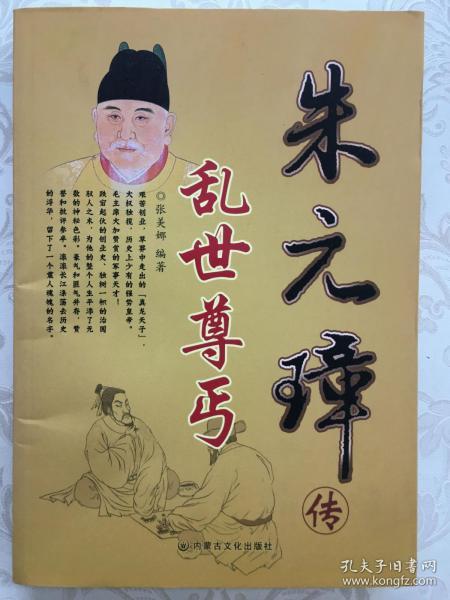 朱元璋
传
乱世尊丐
◎张美娜 编著
艰苦创业，草莽中走出的「真龙天子」，
大权独揽，历史上少有的强势皇帝。
毛主席大加赞赏的军事天才！
跌宕起伏的创业史、独树一帜的治国
驭人之术，为他的整个人生平添了无
数的神秘色彩，豪气和匪气并存，赞
誉和批评参半。滚滚长江涤荡去历史
的浮华，留下了一个震人魂魄的名字。
内蒙古文化出版社
孔夫子旧书网
www.kongfz.com